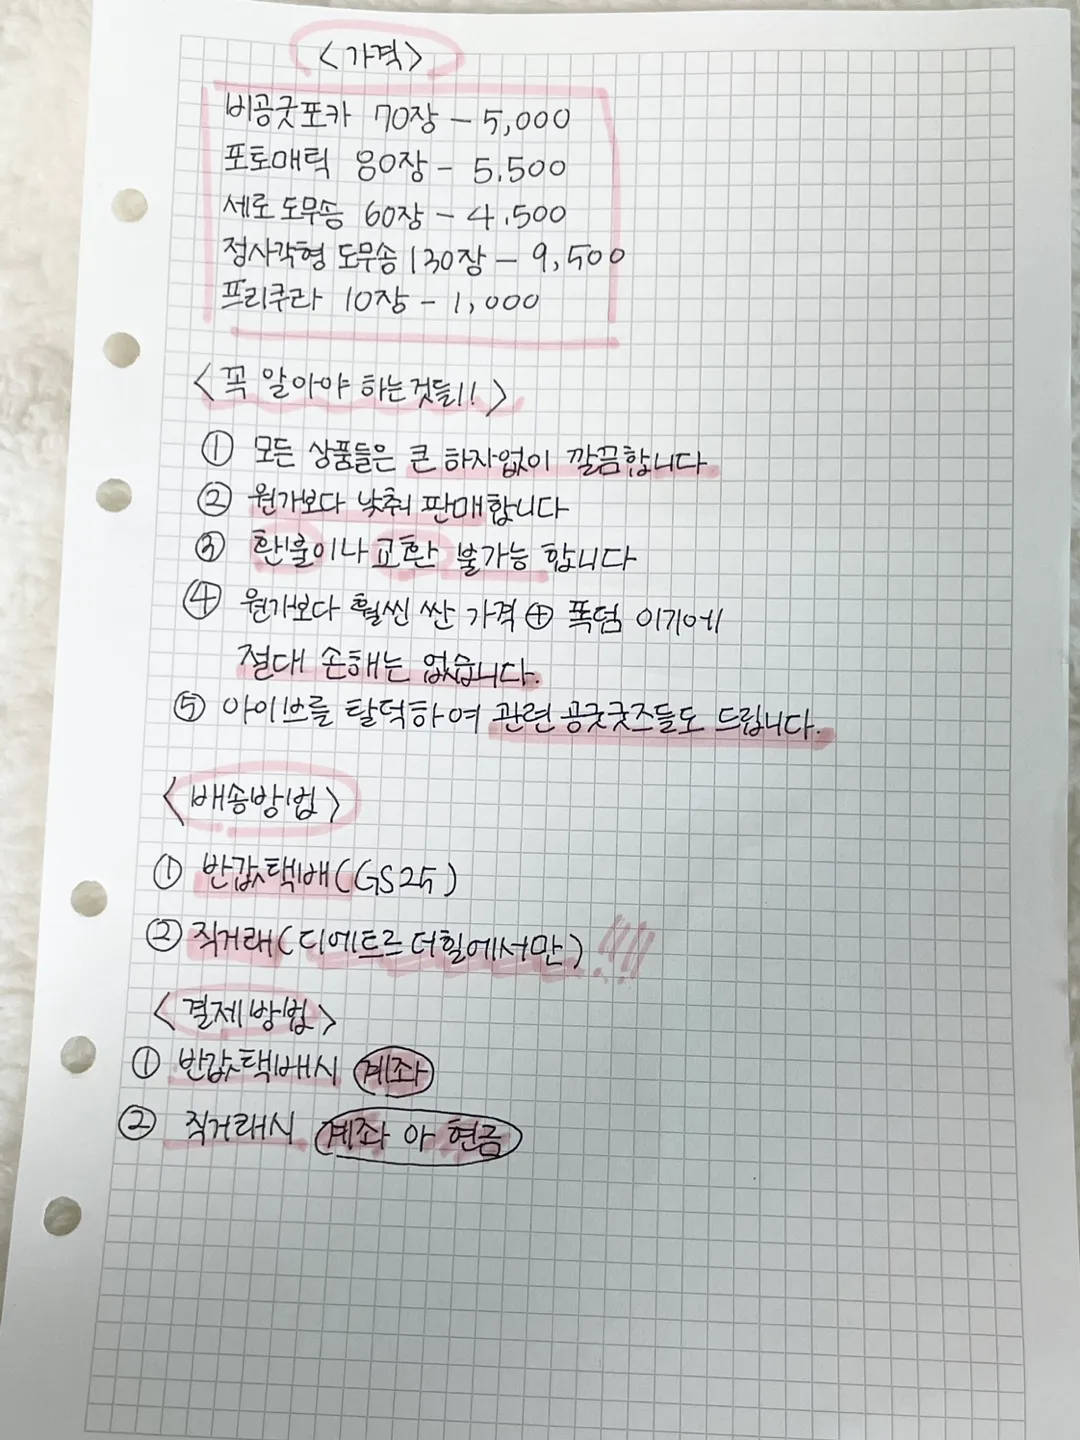 <가격>
비공굿포카 70장 - 5,000
포토매틱 80장 - 5,500
세로 도무송 60장 - 4,500
정사각형 도무송 130장 - 9,500
프리쿠라 10장 - 1,000
<꼭 알아야 하는것들!!>
① 모든 상품들은 큰 하자없이 깔끔합니다
② 원가보다 낮춰 판매합니다
③ 환불이나 교환 불가능 합니다
④ 원가보다 훨씬 싼 가격 ⊕ 폭덤 이기에
절대 손해는 없습니다.
⑤ 아이브를 탈덕하여 관련 공굿굿즈들도 드립니다.
<배송방법>
① 반값택배(GS25)
② 직거래(디에트르 더힐에서만) !!!!
<결제방법>
① 반값택배시 계좌
② 직거래시 계좌 아 현금